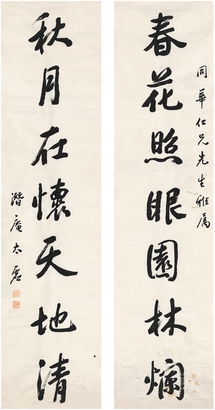 春花照眼園林爛
同華仁兄先生雅屬
秋月在懷天地清
潛庵太虛